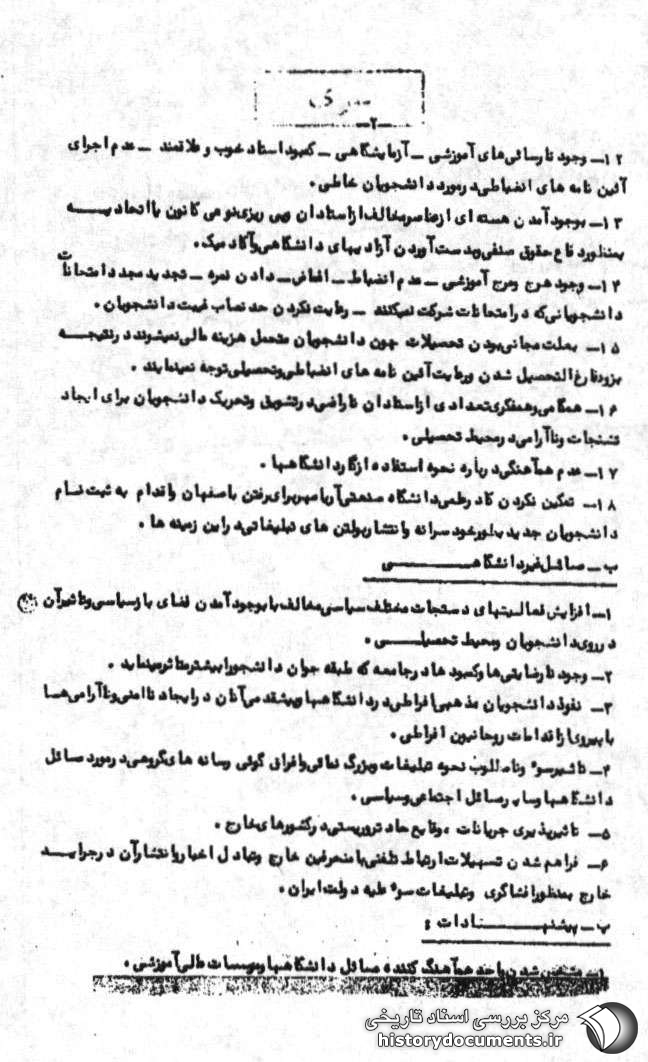 سری
-۲-
۱۲ـ وجود نارسائی های آموزشی ـ آزمایشگاهی ـ کمبود استاد خوب و علاقمند ـ عدم اجرای
آئین نامه های انضباطی در مورد دانشجویان خاطی .
۱۳ـ بوجود آمدن هسته ای از عناصر مخالف از استادان و پی ریزی نوعی کانون یا اتحادیه
بمنظور دفاع حقوق صنفی و بدست آوردن آزادیهای دانشگاهی و آکادمیک .
۱۴ـ وجود هرج و مرج آموزشی ـ عدم انضباط ـ اضافی ـ دادن نمره ـ تجدید مجدد امتحانات
دانشجویانی که در امتحانات شرکت نمیکنند ـ رعایت نکردن حد نصاب غیبت دانشجویان .
۱۵ـ بعلت مجانی بودن تحصیلات چون دانشجویان متحمل هزینه مالی نمیشوند در نتیجه
بزود فارغ التحصیل شدن و رعایت آئین نامه های انضباطی و تحصیلی توجه نمینمایند .
۱۶ـ همگامی و همفکری تعدادی از استادان ناراضی در تشویق و تحریک دانشجویان برای ایجاد
تشنجات و ناآرامی در محیط تحصیلی .
۱۷ـ عدم هماهنگی درباره نحوه استفاده از گارد دانشگاهها .
۱۸ـ تمکین نکردن کادر علمی دانشگاه صنعتی آریامهر برای رفتن باصفهان و اقدام به ثبت نام
دانشجویان جدید بطور خودسرانه و انتشار بولتن های تبلیغاتی در این زمینه ها .
ب ـ مسائل غیر دانشگاهی
۱ـ افزایش فعالیتهای دستجات مختلف سیاسی مخالف با بوجود آمدن فضای باز سیاسی و تاثیر آن
در روی دانشجویان و محیط تحصیلی .
۲ـ وجود نارضایتی ها و کمبودها در جامعه که طبقه جوان دانشجو را بیشتر متاثر مینماید .
۳ـ نفوذ دانشجویان مذهبی افراطی در دانشگاهها و پیشقدمی آنان در ایجاد ناامنی و ناآرامی ها
با پیروی از اقدامات روحانیون افراطی .
۴ـ تاثیر سوء و نامطلوب نحوه تبلیغات و بزرگ نمائی و اغراق گوئی رسانه های گروهی در مورد مسائل
دانشگاهها و سایر مسائل اجتماعی و سیاسی .
۵ـ تاثیرپذیری جریانات ، وقایع حاد تروریستی در کشورهای خارج .
۶ـ فراهم شدن تسهیلات ارتباط تلفنی با منحرفین خارج و تبادل اخبار و انتشار آن در جراید
خارج بمنظور افشاگری و تبلیغات سوء علیه دولت ایران .
پ ـ پیشنهادات :
۱ـ مشخص شدن واحد هماهنگ کننده مسائل دانشگاهها و موسسات عالی آموزشی .
مرکز بررسی اسناد تاریخی
historydocuments.ir